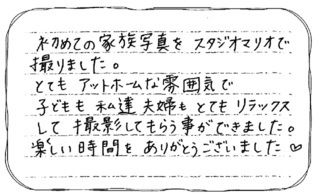 初めての家族写真を スタジオマリオで
撮りました。
とても アットホームな雰囲気で
子どもも 私達 夫婦も とても リラックス
して 撮影してもらう事ができました。
楽しい時間を ありがとうございました♡